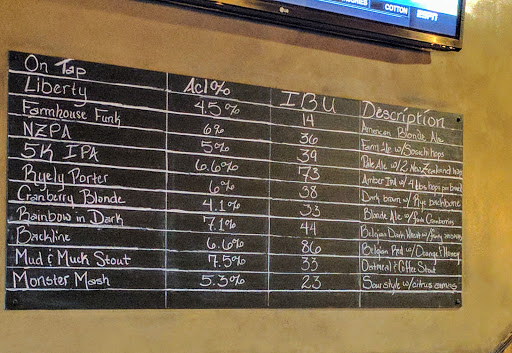 COTTON ESPN
LG
On Tap Acl% IBU Description
Liberty 4.5% 14 American Blonde Ale
Farmhouse Funk 6% 36 Farm Ale w/Sorachi hops
NZPA 5% 39 Pale Ale w/2 New Zealand hops
5K IPA 6.6% 73 Amber Ind w/ 4 lbs hops per
Ryely Porter 6% 38 Dark brown w/ Rye backbone
Cranberry Blonde 4.1% 33 Blonde Ale w/ Cranberries
Rainbow in Dark 7.1% 44 Belgian Dark
Backline 6.6% 86 Belgian Red w/Orange &
Mud & Muck Stout 7.5% 33 Oatmeal & Coffee Stout
Monster Mash 5.3% 23 Sour style w/citrus